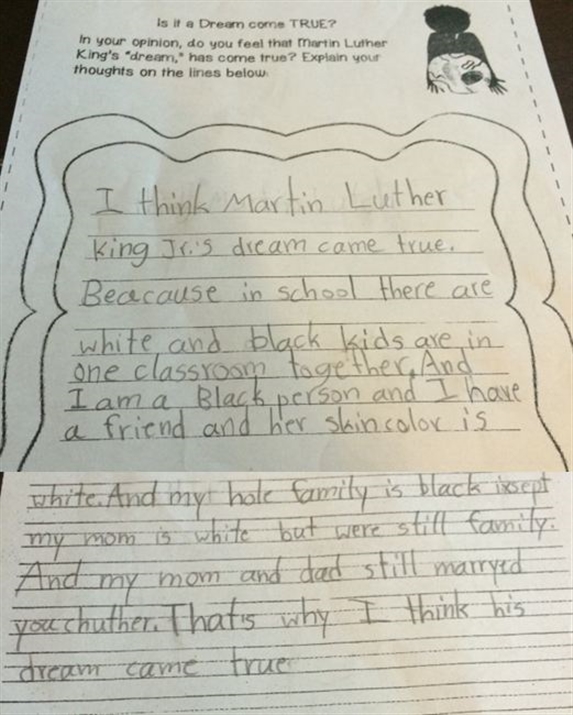 Is it a Dream come TRUE?
In your opinion, do you feel that Martin Luther
King's "dream," has come true? Explain your
thoughts on the lines below.
I think Martin Luther
king Jr.'s dream came true.
Beacause in school there are
white and black kids are in
one classroom together. And
I am a Black person and I have
a friend and her skin color is
white. And my hole family is black ixsept
my mom is white but were still family.
And my mom and dad still marryed
youchuther. That's why I think his
dream came true